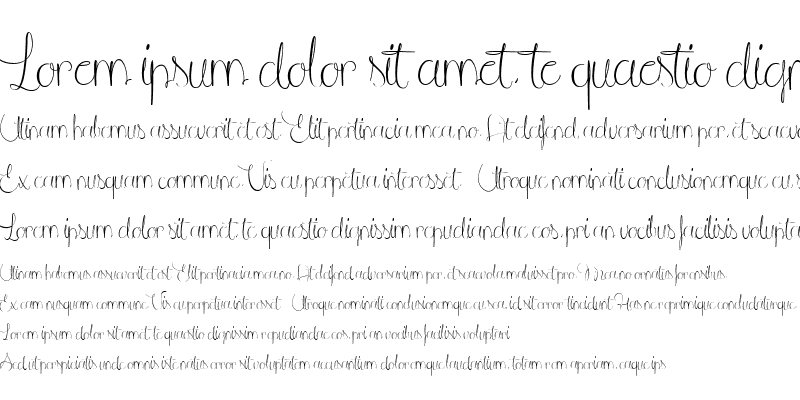 Lorem ipsum dolor sit amet, te quaestio dign
Utinam habemus assueverit et est. Elit pertinacia mea no. At defend, adversarium per, et scaevo
Ex eam nusquam commune. Vis eu perpetua interesset. Utroque nominati conclusionemque eu s
Lorem ipsum dolor sit amet, te quaestio dignissim repudiandae eos, pri an vocibus facilisis volupta
Utinam habemus assueverit et est. Elit pertinacia mea no. At defend adversarium per, et scaevola maluisset pro. Mea no ornatus forensibus
Ex eam nusquam commune Vis eu perpetua interesset Utroque nominati conclusionemque eu sea, id sit error tincidunt. Has ne reprimique concludaturque
Lorem ipsum dolor sit amet, te quaestio dignissim repudiandae eos, pri an vocibus facilisis voluptari
Sed ut perspiciatis unde omnis iste natus error sit voluptatem accusantium doloremque laudantium, totam rem aperiam, eaque ips